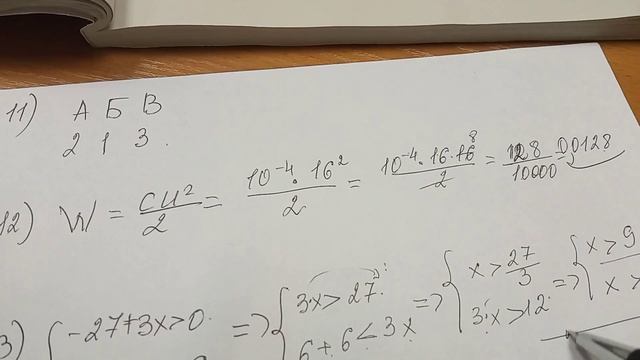 11) А Б В
2 1 3.
12) W = CU²/2 = 10⁻⁴ · 16²/2 = 10⁻⁴ · 16 · 16 8/2 = 128/10000 = 0,0128
3) { -27+3x>0. => { 3·x>27. => { x>27/3 => { x>9
6+6<3x 3·x>12. x>